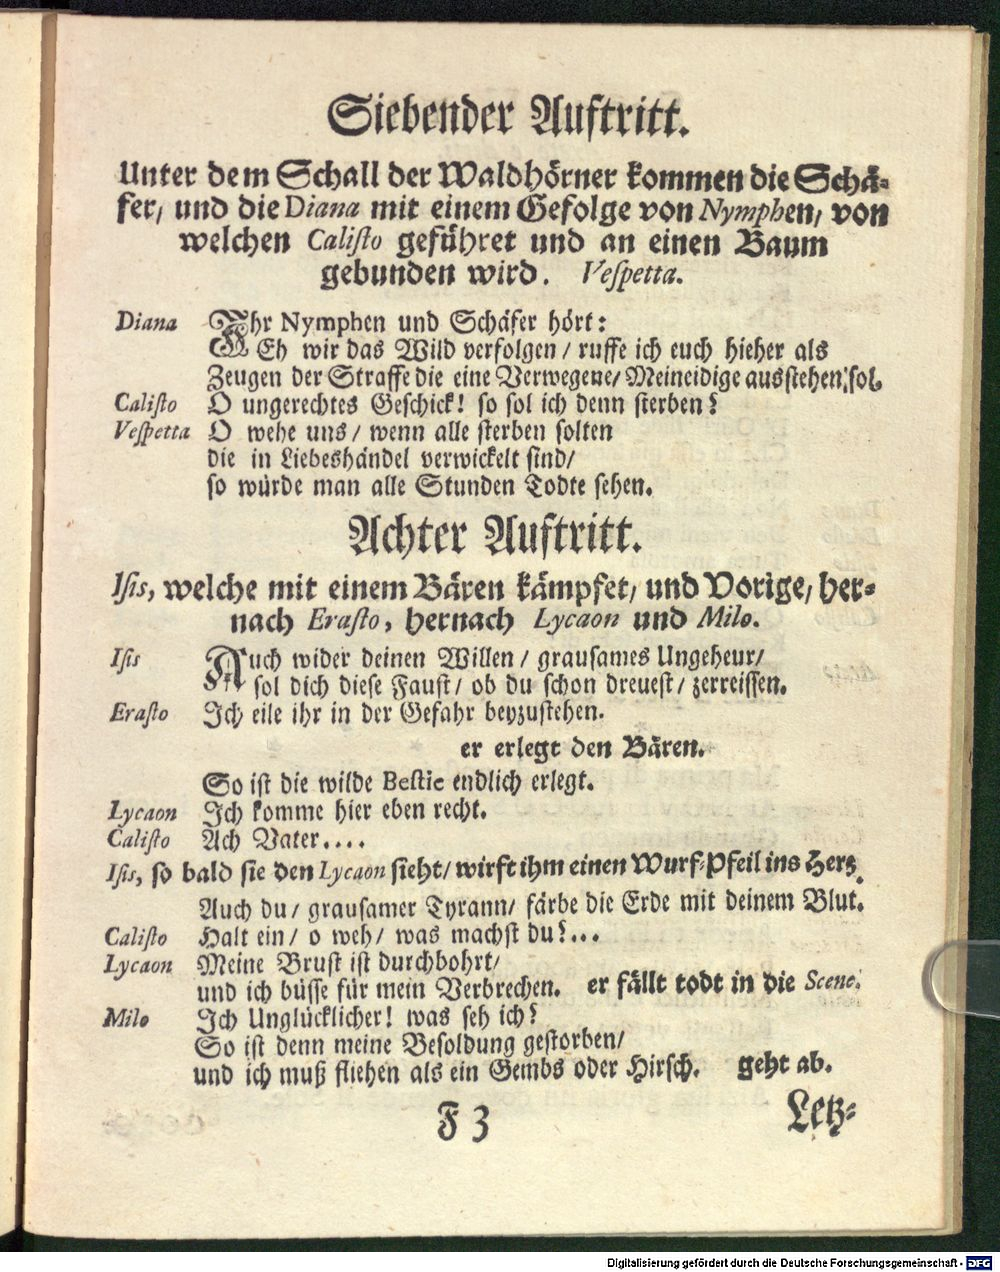 Siebender Auftritt.
Unter dem Schall der Waldhörner kommen die Schä-
fer/ und die Diana mit einem Gefolge von Nymphen/ von
welchen Calisto geführet und an einen Baum
gebunden wird. Vespetta.
Diana Ihr Nymphen und Schäfer hört:
Eh wir das Wild verfolgen/ ruffe ich euch hieher als
Zeugen der Straffe die eine Verwegene/ Meineidige ausstehen sol.
Calisto O ungerechtes Geschick! so sol ich denn sterben?
Vespetta O wehe uns/ wenn alle sterben solten
die in Liebeshändel verwickelt sind/
so würde man alle Stunden Todte sehen.
Achter Auftritt.
Isis, welche mit einem Bären kämpfet/ und Vorige/ her-
nach Erasto, hernach Lycaon und Milo.
Isis Auch wider deinen Willen/ grausames Ungeheur/
sol dich diese Faust/ ob du schon dreuest/ zerreissen.
Erasto Ich eile ihr in der Gefahr beyzustehen.
er erlegt den Bären.
So ist die wilde Bestie endlich erlegt.
Lycaon Ich komme hier eben recht.
Calisto Ach Vater....
Isis, so bald sie den Lycaon sieht/ wirft ihm einen Wurf-Pfeil ins Herz.
Auch du/ grausamer Tyrann/ färbe die Erde mit deinem Blut.
Calisto Halt ein/ o weh/ was machst du?...
Lycaon Meine Brust ist durchbohrt/
und ich büsse für mein Verbrechen. er fällt todt in die Scene.
Milo Ich Unglücklicher! was seh ich?
So ist denn meine Besoldung gestorben/
und ich muß fliehen als ein Gembs oder Hirsch. geht ab.
F 3 Letz-
Digitalisierung gefördert durch die Deutsche Forschungsgemeinschaft - DFG